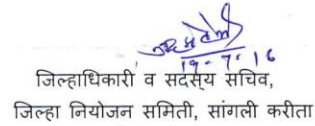 19-7-16
जिल्हाधिकारी व सदस्य सचिव,
जिल्हा नियोजन समिती, सांगली करीता